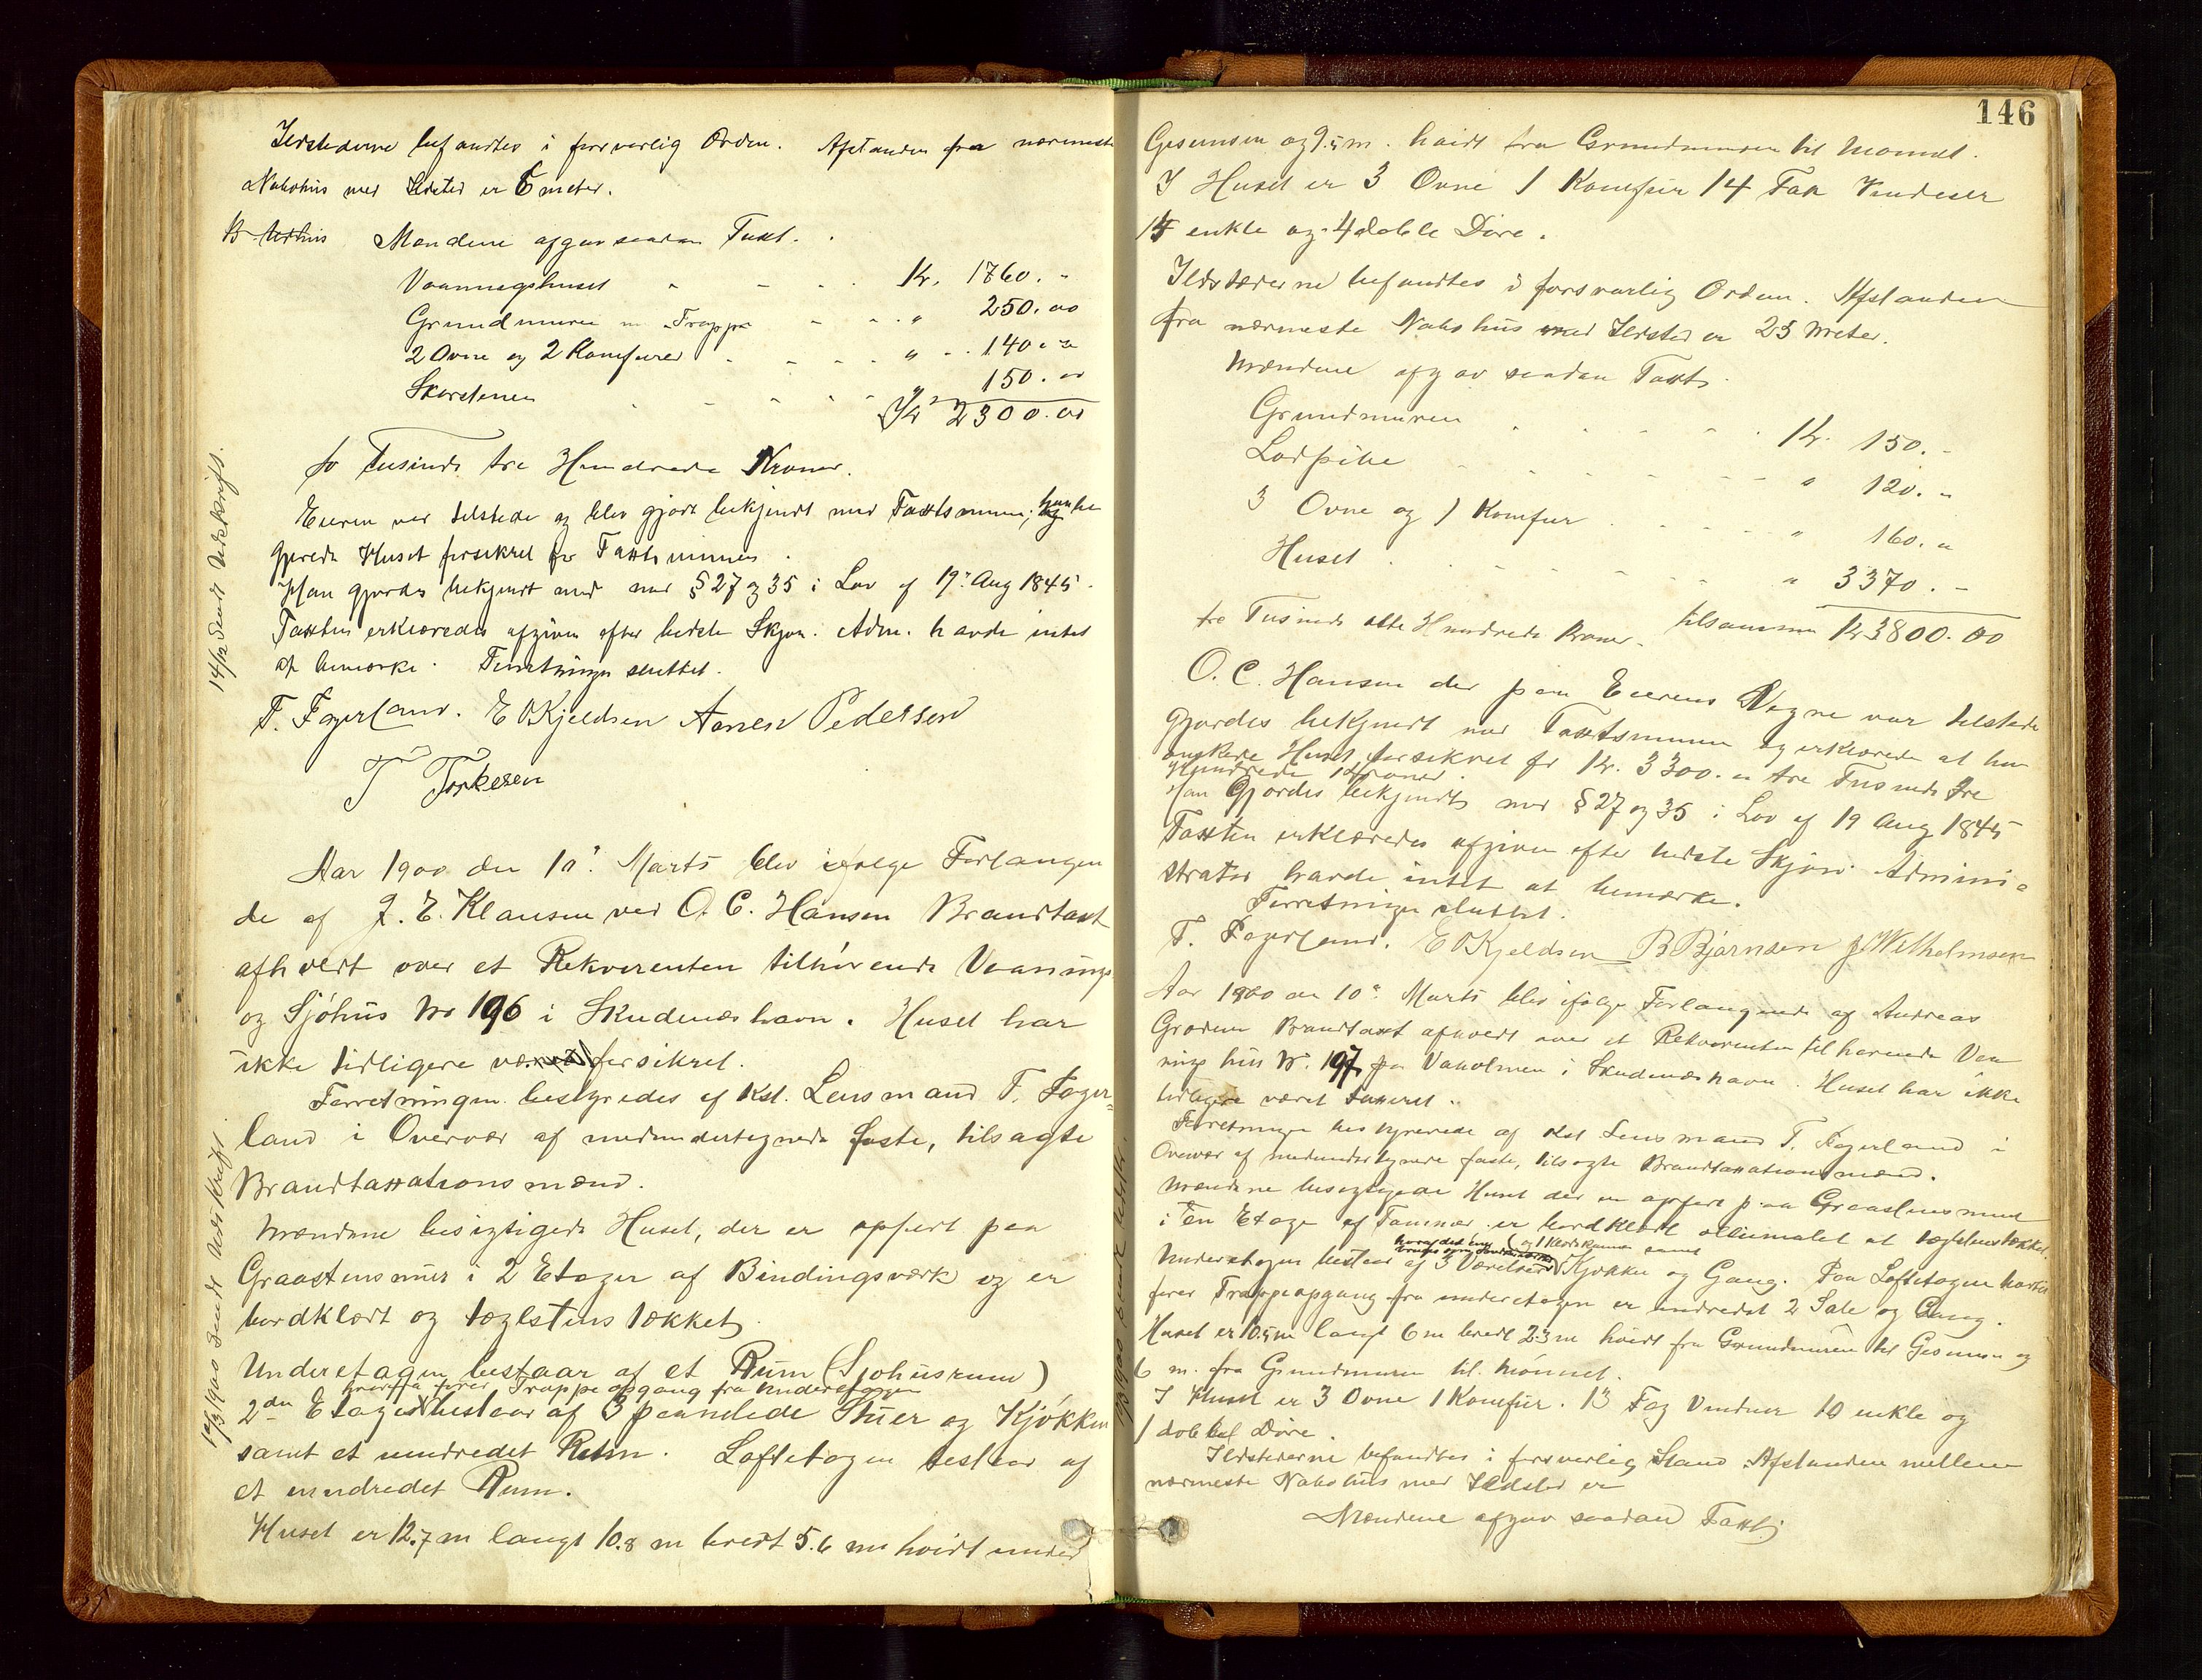 Ildstederne befandtes i forsvarlig Orden. Afstanden fra nærmeste
Nabohus med Ildsted er 6 meter.
Mændene afgav saadan Taxt.
Vaaningshuset Kr. 1760. -
Grundmuren m Trappe " 250.00
2 Ovne og 2 Komfurer " 140.00
Skorstenen " 150.00
Kr 2300.00
to Tusinde tre Hundrede Kroner.
Eieren var tilstede og blev gjort bekjendt med Taxtsummen, han be
gjærede Huset forsikret for Taxtsummen.
Han gjordes bekjendt med § 27 og 35 i Lov af 19. Aug 1845.
Taxten erklæredes afgiven efter bedste Skjøn. Adm. havde intet
at bemærke. Forretningen sluttet.
T. Fagerland. E Kjeldsen Pedersen
T Torkesen
14/12 sendt Udskrift.
Aar 1900 den 10. Marts blev ifølge Forlangen
de af J. E. Klausen ved O. C. Hansen Brandtaxt
afholdt over et Rekvirenten tilhørende Vaanings
og Sjøhus No 196 i Skudeneshavn. Huset har
ikke tidligere været forsikret.
Forretningen bestyredes af Kst. Lensmand T. Fager-
land i Overvær af medundertegnede faste, tilsagte
Brandtaxationsmænd.
Mændene besigtigede Huset, der er opført paa
Graastensmur i 2 Etager af Bindingsværk og er
bordklædt og tæglstenstækket.
Underetagen bestaar af et Rum (Sjøhusrum)
hvorfra fører Trappeopgang fra underetagen
2den Etage bestaar af 3 paanelede Stuer og Kjøkken
samt et uindredet Rum. Loftetagen bestaar af
et uindredet Rum.
Huset er 12.7 m langt 10.8 m bredt 5.6 m høidt under
12/3 1900 sendt Udskrift.
146
Gesimsen og 9.5 m. høidt fra Grundmuren til Mønnet.
I Huset er 3 Ovne 1 Komfur 14 Fag Vinduer
14 enkle og 4 doble Døre.
Ildstederne befandtes i forsvarlig Orden. Afstanden
fra nærmeste Nabohus med Ildsted er 23 Meter.
Mændene afgav saadan Taxt.
Grundmuren Kr. 150. -
Lodpibe " 120. "
3 Ovne og 1 Komfur " 160. "
Huset " 3370. -
tre Tusinde otte Hundrede Kroner. tilsammen Kr 3800.00
O. C. Hansen der paa Eierens Vegne var tilstede
gjordes bekjendt med Taxtsummen og erklærede at han
ønskede Huset forsikret for Kr. 3300. " tre Tusinde tre
Hundrede Kroner.
Han gjordes bekjendt med § 27 og 35 i Lov af 19 Aug 1845
Taxten erklæredes afgiven efter bedste Skjøn. Admini-
strator havde intet at bemærke.
Forretningen sluttet.
T. Fagerland. E Kjeldsen B Bjørnsen J Wilhelmsen
Aar 1900 den 10. Marts blev ifølge Forlangende af Andreas
Grødem Brandtaxt afholdt over et Rekvirenten tilhørende Vaa
nings hus No. 197 paa Vaholmen i Skudeneshavn. Huset har ikke
tidligere været taxeret.
Forretningen bestyrede af Kst Lensmand T. Fagerland i
Overvær af medundertegnede faste, tilsagte Brandtaxationsmænd.
Mændene besigtigede Huset der er opført paa Graastensmur
i En Etage af Tømmer er bordklædt oliemalet og tæglstenstækket.
Underetagen bestaar af 3 Værelser Kjøkken og Gang. Paa Loftetagen hvortil
fører Trappeopgang fra underetagen er indredet 2 Sale og Gang.
Huset er 10.5 m langt 6 m bredt 2.3 m høidt fra Grundmuren til Gesimsen og
6 m. fra Grundmuren til Mønnet.
I Huset er 3 Ovne 1 Komfur. 13 Fag Vinduer 10 enkle og
1 dobbel Døre.
Ildstederne befandtes i forsvarlig Stand Afstanden mellem
nærmeste Nabohus med Ildsted er
Mændene afgav saadan Taxt;